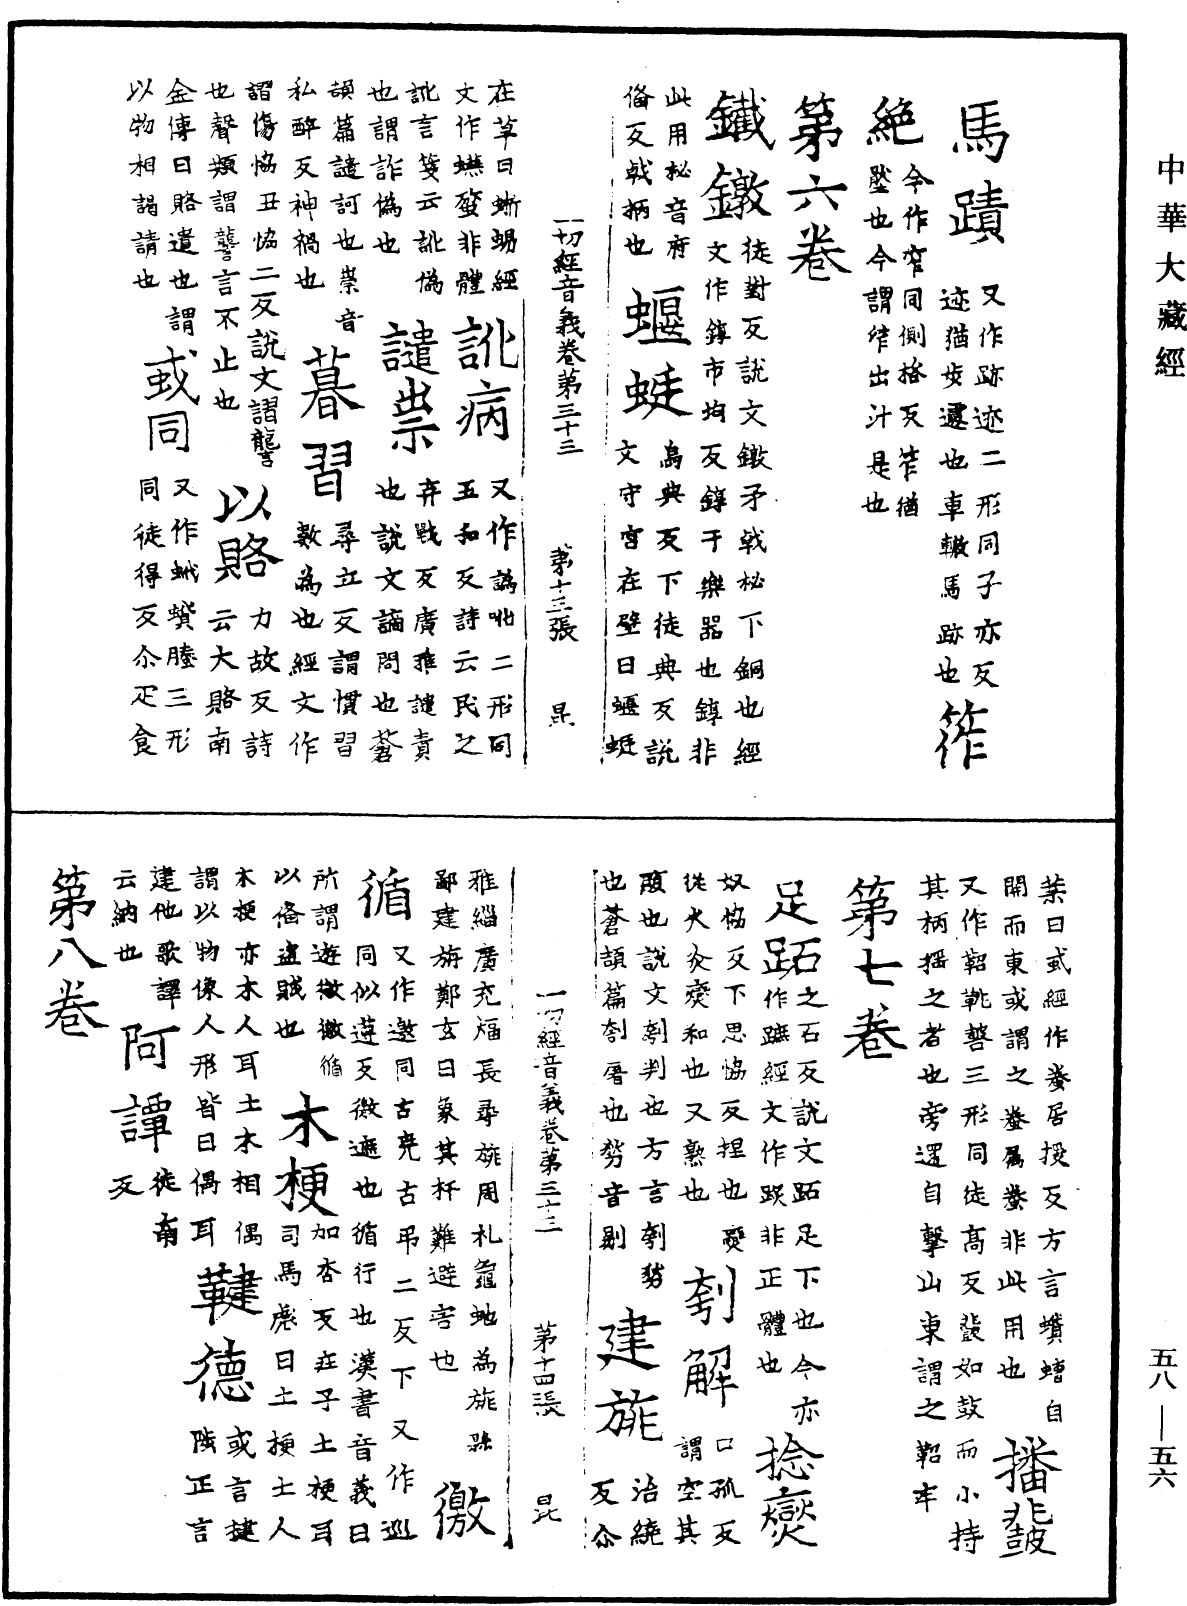 中華大藏經
馬蹟又作跡迹二形同子亦反迹猶步邊也車轍馬跡也笮
絕今作窄同側格反笮猶壓也今謂笮出汁是也
第六卷
鐵鐓徒對反說文鐓矛戟柲下銅也經文作錞市均反錞于樂器也錞非
此用柲音府俻反戟柄也蝘蜓烏典反下徒典反說文守宮在壁曰蝘蜓
一切經音義卷第三十三 第十三張 昆
在草曰蜥蜴經文作蠮螢非體訛病又作譌吪二形同五和反詩云民之
訛言箋云訛偽也謂詐偽也譴祟弃戰反廣雅譴責也說文謫問也蒼
頡篇譴訶也祟音私醉反神禍也暮習尋立反謂慣習數為也經文作
謵傷恊丑恊二反說文謵讋也聲類謂讋言不止也以賂力故反詩云大賂南
金傳曰賂遺也謂以物相謁請也蟘同又作蚮蟘螣三形同徒得反尒疋食
葉曰蟘經作蚕居授反方言蟥螬自
開而東或謂之蚕屬蚕非此用也播鼗
又作鞀鞉磬三形同徒高反鼗如鼓而小持
其柄播之者也旁還自擊山東謂之鞀牢
第七卷
足跖之石反說文跖足下也今亦作蹠經文作䟦非正體也捻燮
奴恊反下思恊反捏也燮從火灸燮和也又熟也刳解口孤反謂空其
腹也說文刳判也方言刳剺也蒼頡篇刳屠也剺音剔建旐治繞反尒
一切經音義卷第三十三 第十四張 昆
雅緇廣充幅長尋旐周札龜虵為旐縣鄙建旐鄭玄曰象其杆難避害也徼
循又作邀同古堯古弔二反下又作巡同似遵反徼遮也循行也漢書音義曰
所謂遊徼徼循以俻盜賊也木梗加杏反莊子土梗耳司馬彪曰土梗土人
木梗亦木人耳土木相偶謂以物像人形皆曰偶耳鞬德或言揵陟正言
建他歌譯云納也阿譚徒南反
第八卷
五八—五六